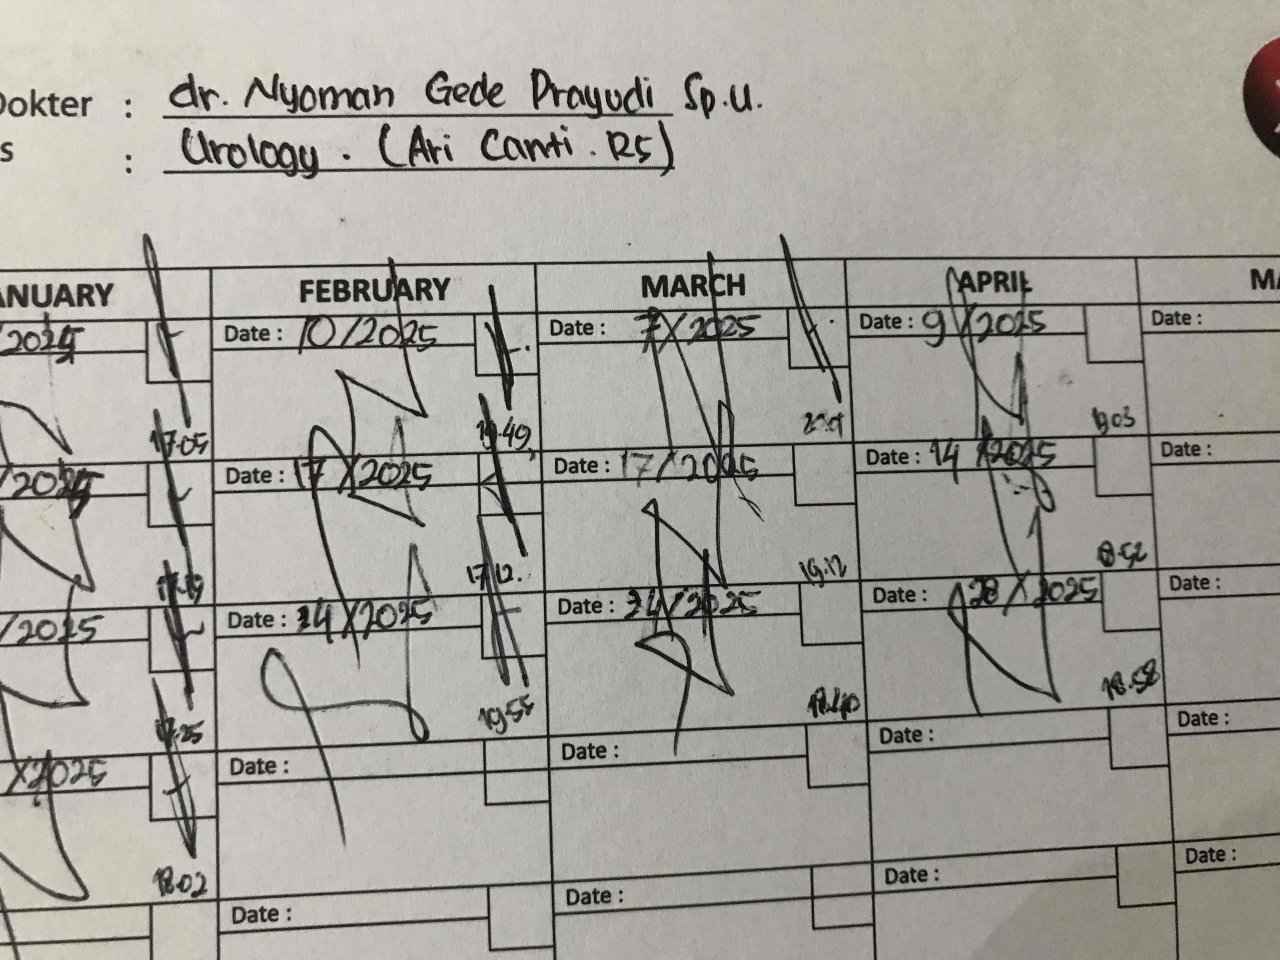 Dokter : dr. Nyoman Gede Prayudi Sp.U.
s : Urology. (Ari Canti. RS)
ANUARY FEBRUARY MARCH APRIL MA
/2025 Date : 10/2025 Date : 7/2025 Date : 9/2025 Date :
17.05 19.49 19.03
/2025 Date : 17/2025 Date : 17/2025 Date : 14/2025 Date :
17.12. 19.12 18.52
/2025 Date : 24/2025 Date : 24/2025 Date : 28/2025 Date :
19.55 18.40 18.58
/2025 Date : Date : Date : Date :
18.02
Date : Date : Date : Date :